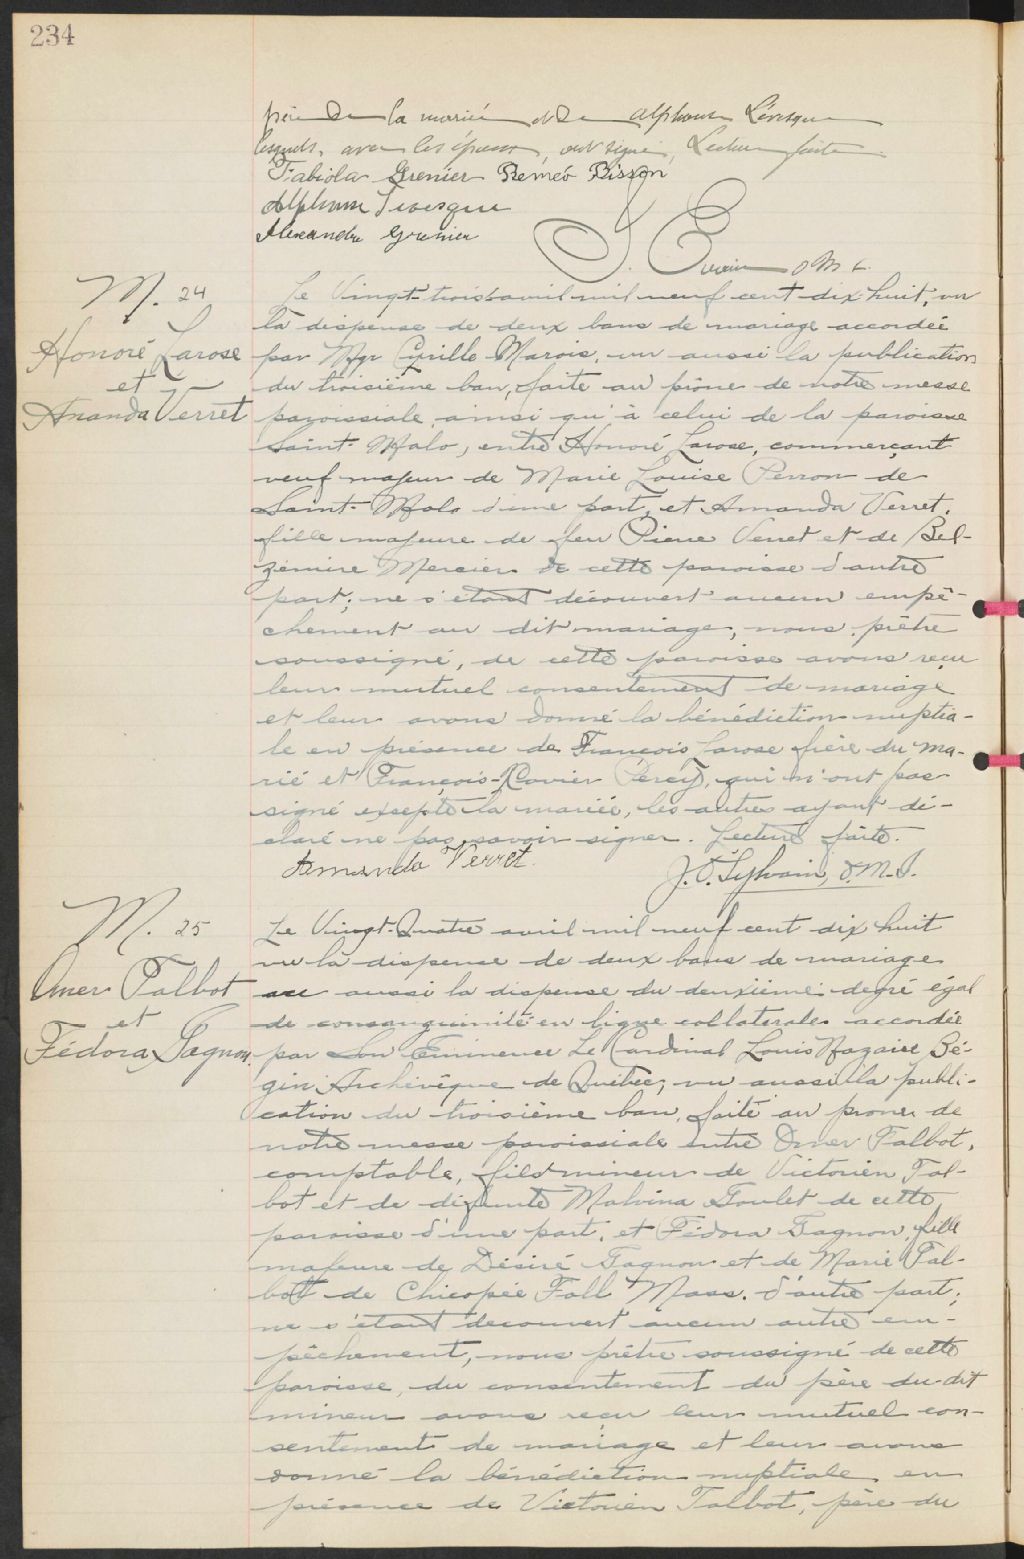 234
père de la mariée et de Alphonse Lévesque
lesquels, avec les époux, ont signé, Lecture faite
Fabiola Grenier Roméo Bisson
Alphonse Levesque
Alexandre Grenier
O M I.
M. 24
Honoré Larose
et
Amanda Verret
Le Vingt-trois avril mil neuf cent dix huit, vu
la dispense de deux bans de mariage accordée
par Mgr Cyrille Marois, vu aussi la publication
du troisième ban, faite au prône de notre messe
paroissiale ainsi qu'à celui de la paroisse
Saint-Malo, entre Honoré Larose, commerçant
veuf majeur de Marie Louise Perron de
Saint-Malo d'une part, et Amanda Verret,
fille majeure de feu Pierre Verret et de Bel-
zémire Mercier de cette paroisse d'autre
part; ne s'étant découvert aucun empê-
chement au dit mariage, nous prêtre
soussigné, de cette paroisse avons reçu
leur mutuel consentement de mariage
et leur avons donné la bénédiction nuptia-
le en présence de François Larose frère du ma-
rié et François-Xavier Percy, qui n'ont pas
signé excepté la mariée, les autres ayant dé-
claré ne pas savoir signer. Lecture faite.
Amanda Verret.
J. O. Sylvain, O.M.I.
M. 25
Omer Talbot
et
Fédora Gagnon
Le Vingt-Quatre avril mil neuf cent dix huit
vu la dispense de deux bans de mariage
aussi la dispense du deuxième degré égal
de consanguinité en ligne collatérale accordée
par Son Eminence Le Cardinal Louis Nazaire Bé-
gin Archevêque de Québec, vu aussi la publi-
cation du troisième ban, faite au prone de
notre messe paroissiale entre Omer Talbot,
comptable, fils mineur de Victorien Tal-
bot et de défunte Malvina Goulet de cette
paroisse d'une part, et Fédora Gagnon, fille
majeure de Désiré Gagnon et de Marie Tal-
bot de Chicopée Fall Mass. d'autre part;
ne s'étant découvert aucun autre em-
pêchement, nous prêtre soussigné de cette
paroisse, du consentement du père du dit
mineur avons reçu leur mutuel con-
sentement de mariage et leur avons
donné la bénédiction nuptiale en
présence de Victorien Talbot, père du